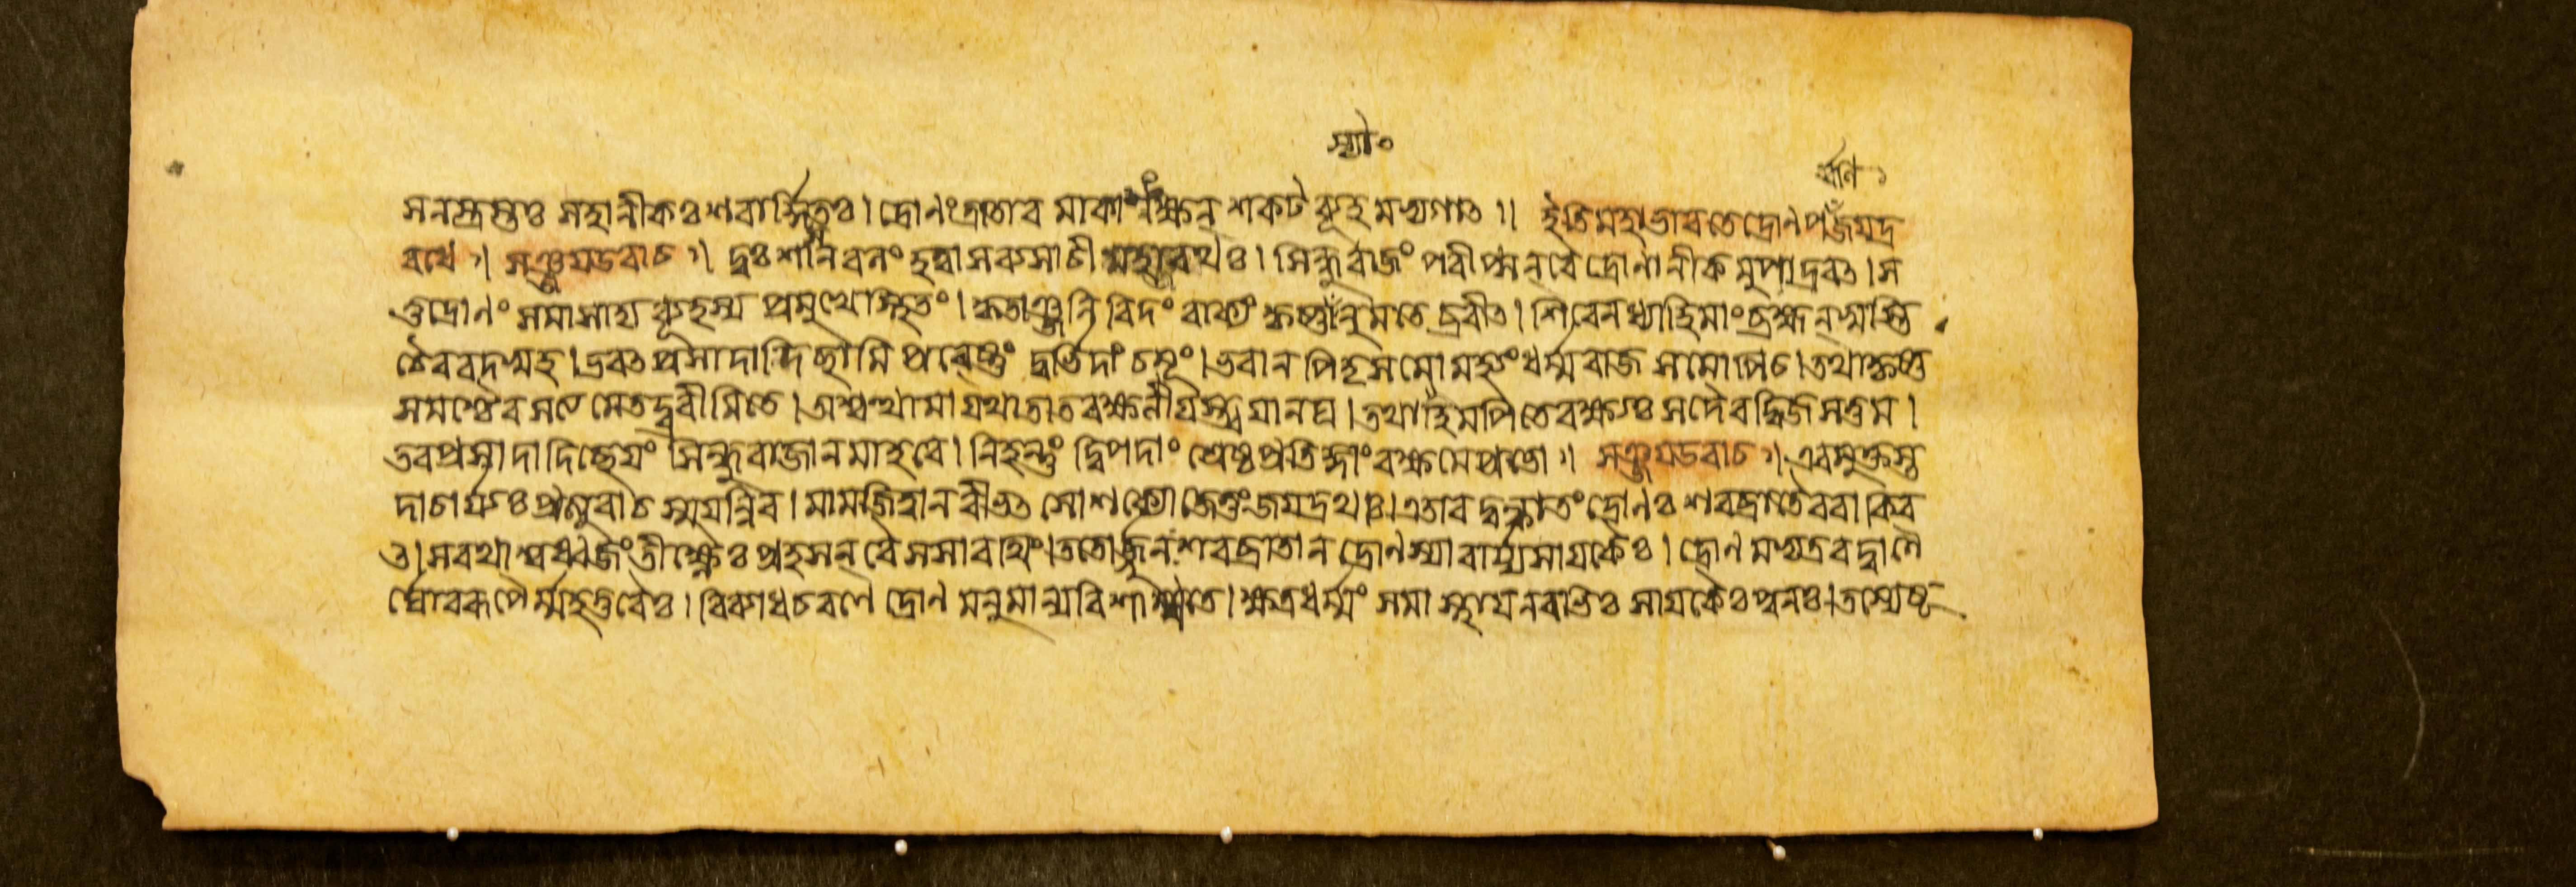 স্যাঃ
র্ব্বণি
সনস্ত্রস্তঃ সহানীকঃ শরার্দ্দিতঃ। দ্রোণং ত্রাতারমাকাঙ্ক্ষন্ শকটব্যূহমভ্যগাৎ॥ ইতি মহাভারতে দ্রোণপ জয়দ্র
রথে॥ সঞ্জয় উবাচ॥ দুঃশাসনবলং হত্বা সব্যসাচী মহারথঃ। সিন্ধুরাজং পরীপ্সন্ বৈ দ্রোণানীকমুপাদ্রবৎ। স
তু দ্রোণং সমাসাদ্য ব্যূহস্য প্রমুখে স্থিতং। কৃতাঞ্জলিরিদং বাক্যং কৃষ্ণানুমতে ব্রবীৎ। শিবেন ধ্যাহি মাং ব্রহ্মন্ স্বস্তি
চৈব বদস্ব মহ। ভবৎপ্রসাদাদিচ্ছামি প্রবেষ্টুং দুর্ভিদাং চমূং। ভবান্ পিতৃসমো মহ্যং ধর্ম্মরাজসমো পি চ। তথা কৃষ্ণ
সমশ্চৈব সত্যমেতদ্ব্রবীমি তে। অশ্বত্থামা যথা তাত রক্ষণীয়স্ত্বয়ানঘ। তথাহমপি তে রক্ষ্যঃ সদৈব দ্বিজসত্তম।
তব প্রসাদাদিচ্ছেয়ং সিন্ধুরাজানমাহবে। নিহন্তুং দ্বিপদাং শ্রেষ্ঠ প্রতিজ্ঞাং রক্ষ মে প্রভো॥ সঞ্জয় উবাচ॥ এবমুক্তস্ত
দাচার্য্যঃ প্রত্যুবাচ স্ময়ন্নিব। মামজিত্বা ন বীভৎসো শক্যো জেতুং জয়দ্রথঃ। এতাবদুক্ত্বা তং দ্রোণঃ শরব্রাতৈরবাকির
ৎ। সরথাশ্বধ্বজং তীক্ষ্ণৈঃ প্রহসন্ বৈ সসারথিং। ততোর্জ্জুনঃ শরব্রাতান্ দ্রোণস্যাবার্য্য সায়কৈঃ। দ্রোণমভ্যদ্রবদ্বাণৈ
র্ঘোররূপৈর্ম্মহত্তরৈঃ। বিব্যাধ চ রণে দ্রোণমনুমান্য বিশাম্পতে। ক্ষত্রধর্ম্মং সমাস্থায় নবভিঃ সায়কৈঃ পুনঃ। তস্যেষূ